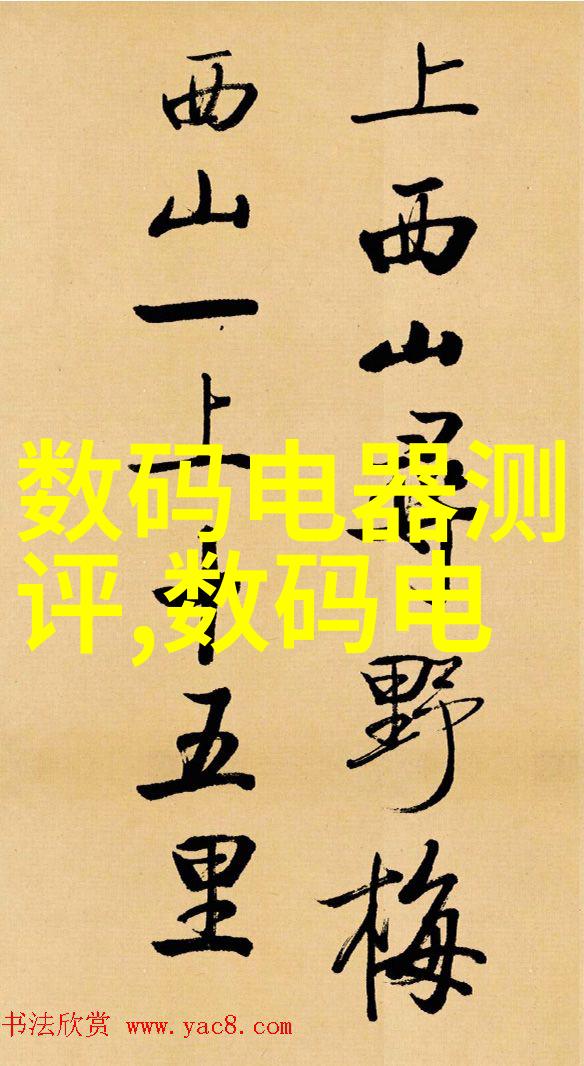 上西山尋野梅
西山一上十五里
数码电器测
评,数码电
书法欣赏 www.yac8.com